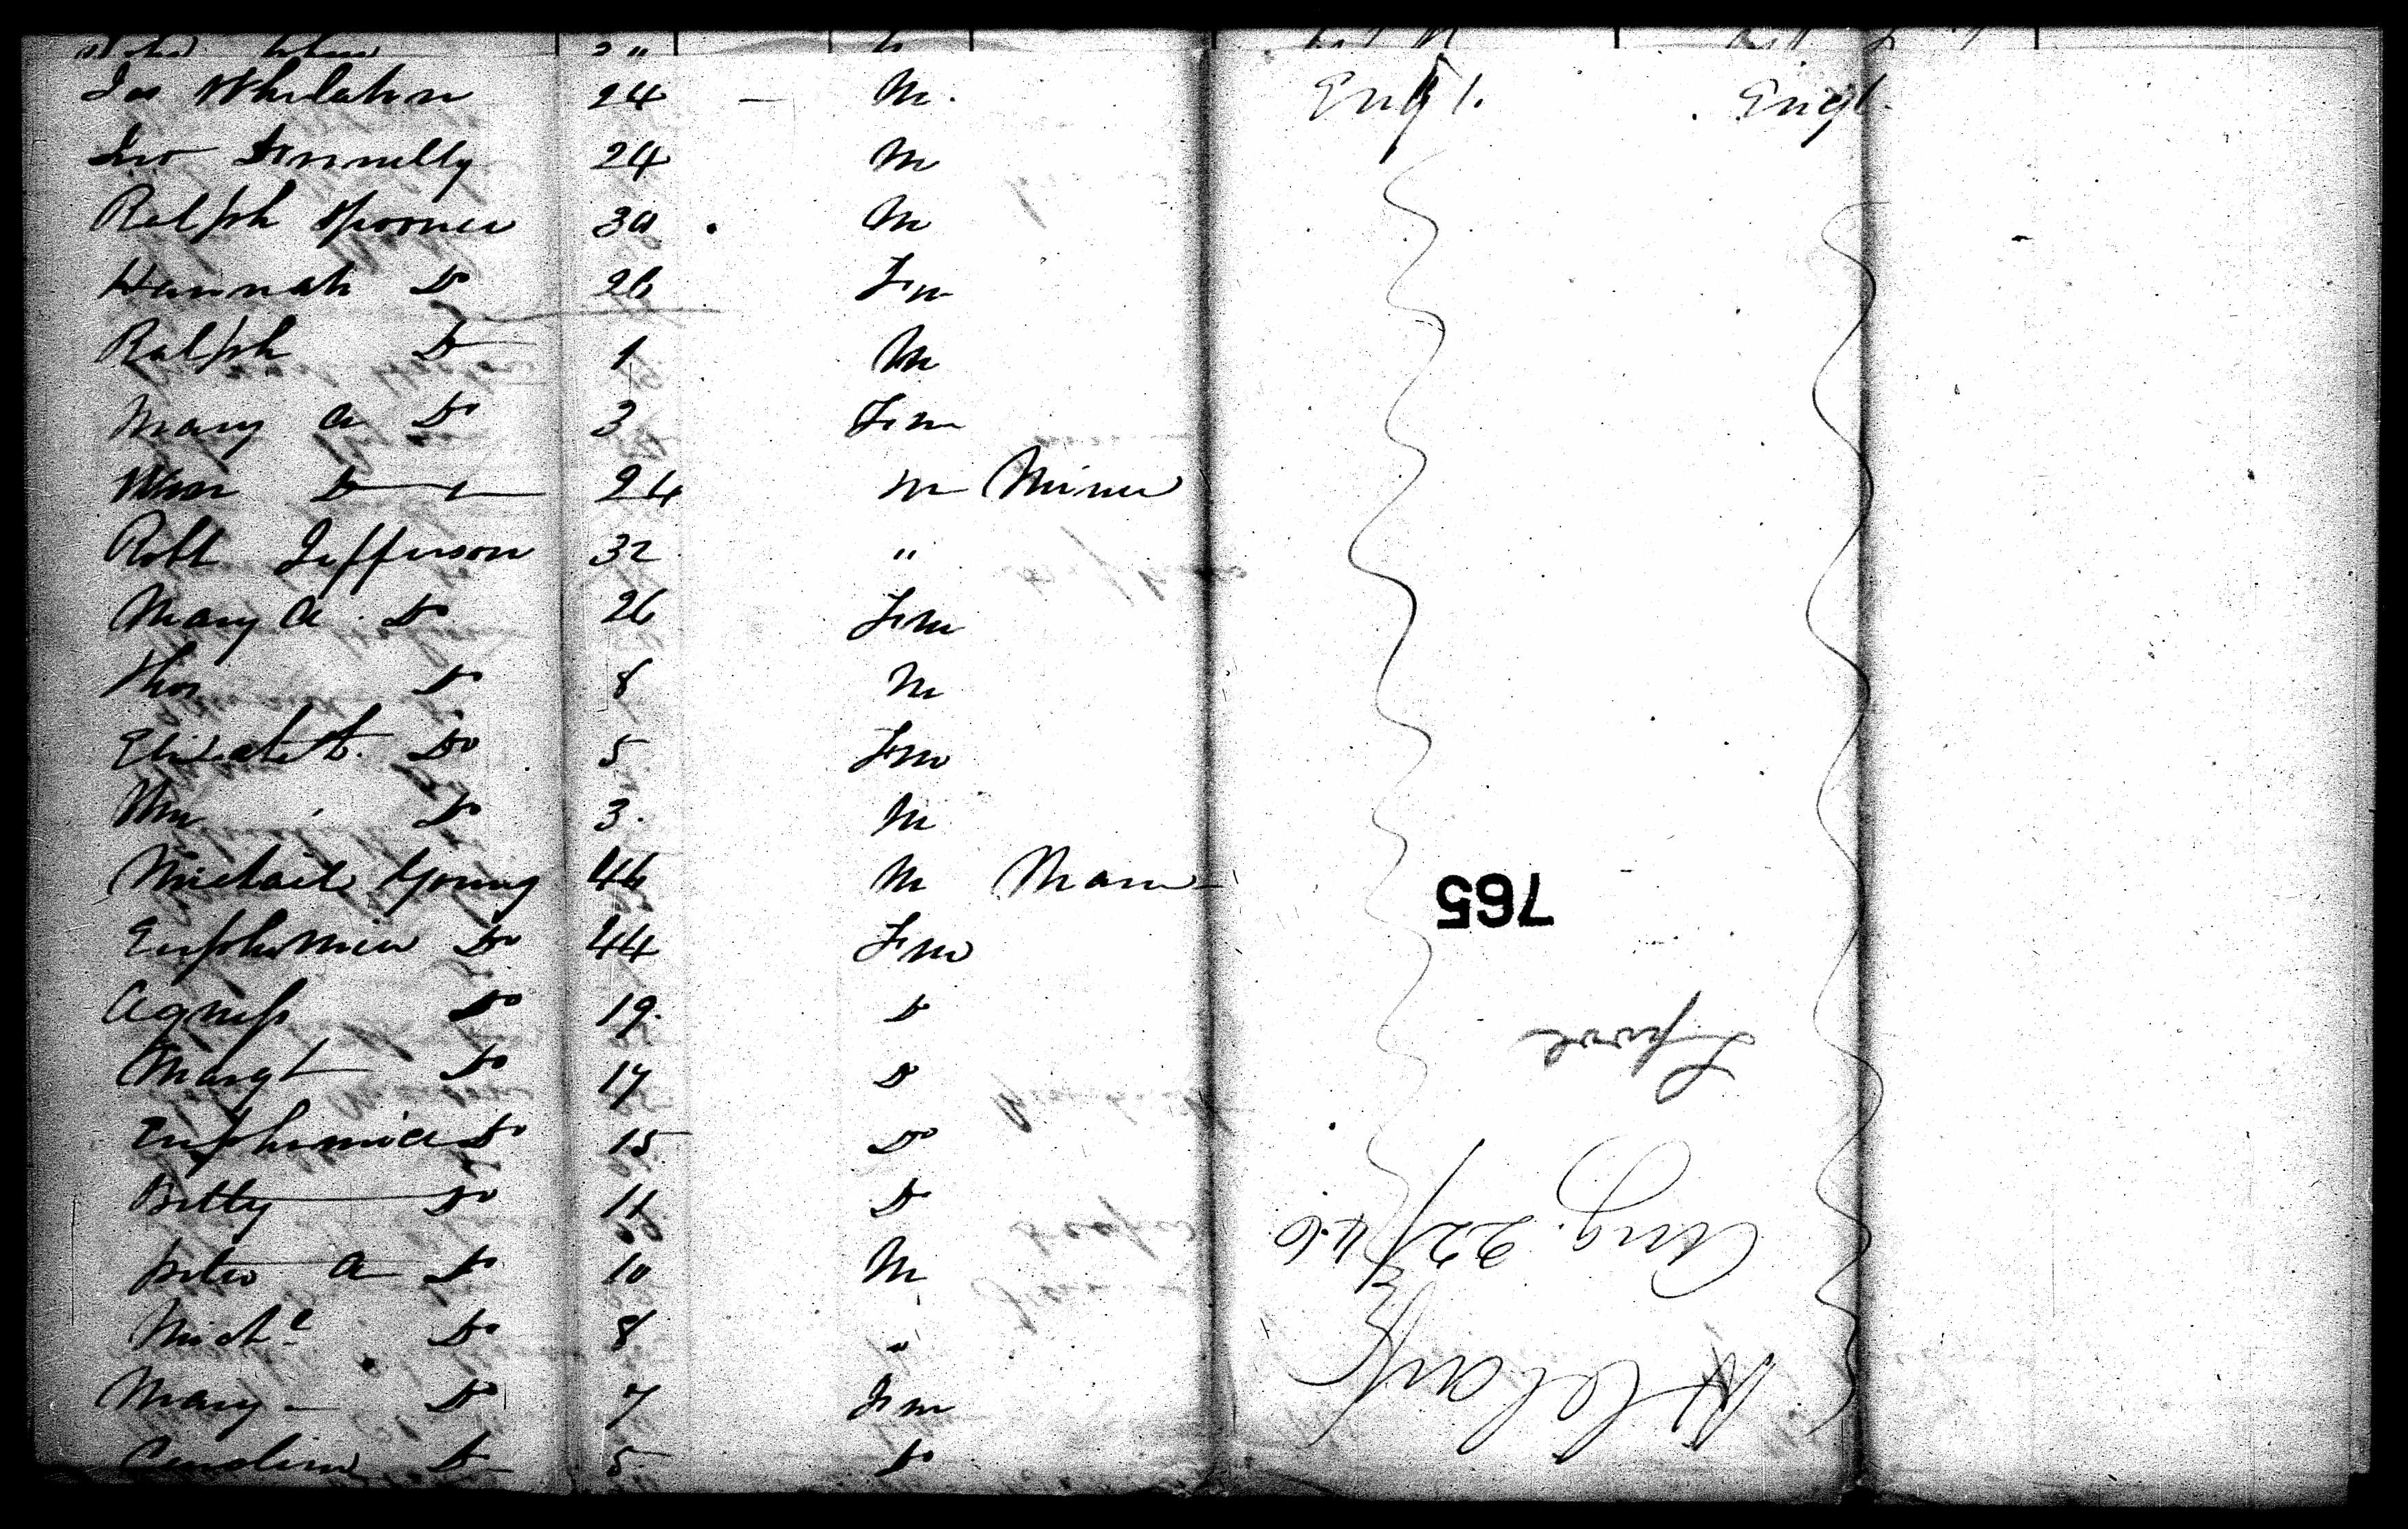 Jas Whelahan 24 — M. Engl. Engl.
Jno Donnelly 24 M
Ralph Spooner 30 M
Hannah Do 26 Fm
Ralph Do 1 M
Mary A Do 3 Fm
Wm Do 24 M Miner
Robt Jefferson 32 "
Mary A. Do 26 Fm
Thos Do 8 M
Elizabeth Do 5 Fm
Wm Do 3. M
Michael Young 46 M
Euphemia Do 44 Fm
Agness Do 19 Do
Margt Do 17 Do
Euphemia Do 15 Do
Betty Do 11 Do
Peter A Do 10 M
Michl Do 8 "
Mary Do 7 Fm
Caroline Do 5 Do
Aug. 22/46
Lpool
765